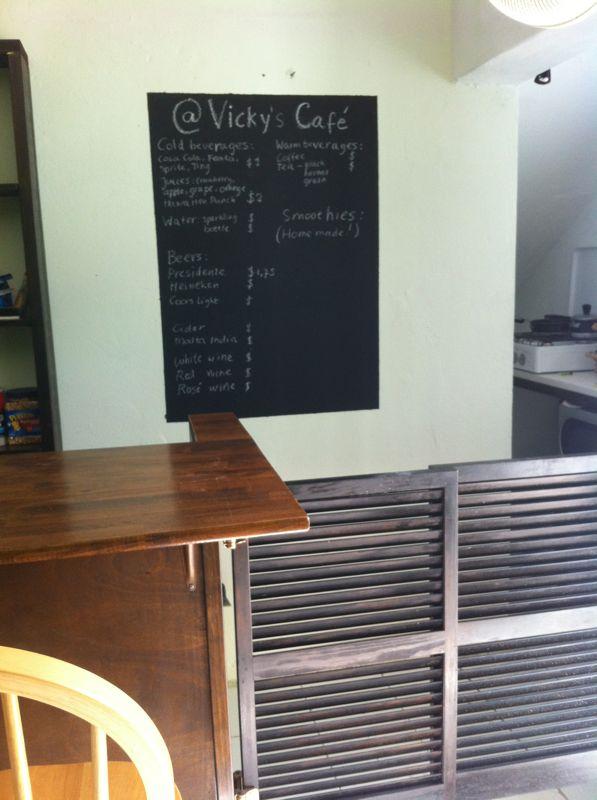 @ Vicky's Café
Cold beverages:
Coca Cola, Fanta,
Sprite, Ting $1
Juices: cranberry,
apple, grape, orange
Hawaiian Punch $2
Water: sparkling $
bottle $
Beers:
Presidente $1,75
Heineken $
Coors Light $
Cider $
Malta India $
White wine $
Red wine $
Rosé wine $
Warm beverages:
Coffee $
Tea - black $
green
Smoothies:
(Home made!)